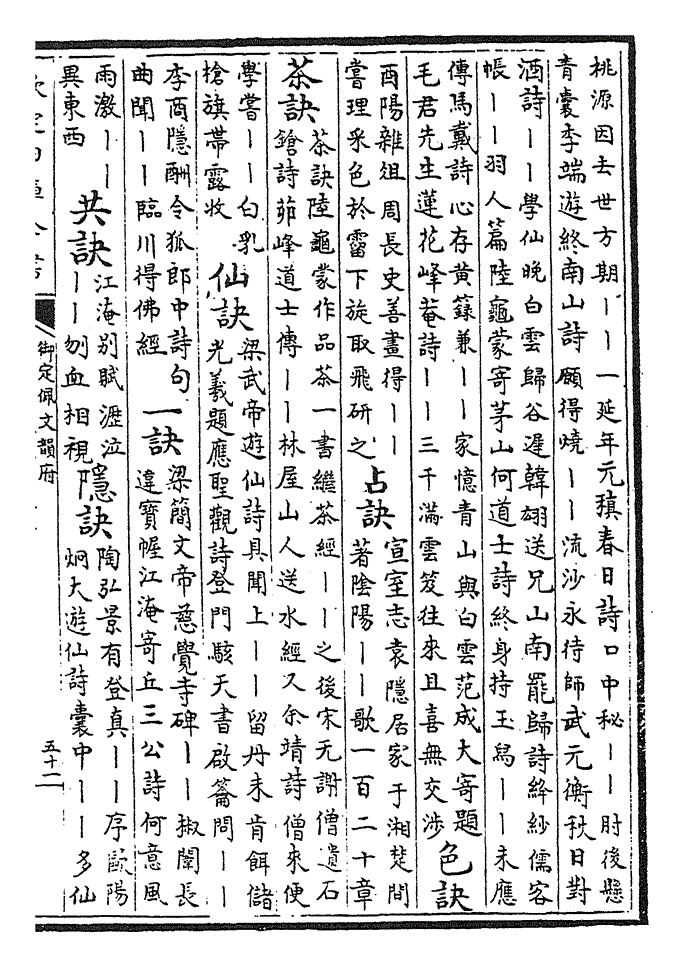 桃源因去世方期｜｜一延年元稹春日詩口中秘｜｜肘後懸
青囊李端遊終南山詩願得燒｜｜流沙永待師武元衡秋日對
酒詩｜｜學仙晚白雲歸谷遲韓翃送兄山南罷歸詩絳紗儒客
帳｜｜羽人篇陸龜蒙寄茅山何道士詩終身持玉舄｜｜未應
傳馬戴詩心存黃籙兼｜｜家憶青山與白雲范成大寄題
毛君先生蓮花峰菴詩｜｜三千滿雲笈往來且喜無交涉
色訣
酉陽雜俎周長史善畫得｜｜
嘗理采色於霤下旋取飛研之
占訣
宣室志袁隱居家于湘楚間
著陰陽｜｜歌一百二十章
茶訣
茶訣陸龜蒙作品茶一書繼茶經｜｜之後宋无謝僧遺石
鎗詩茆峰道士傳｜｜林屋山人送水經又余靖詩僧來便
學嘗｜｜白乳
槍旗帯露收
仙訣
梁武帝遊仙詩具聞上｜｜留丹未肯餌儲
光羲題應聖觀詩登門駭天書啟籥問｜｜
李商隱酬令狐郎中詩句
曲聞｜｜臨川得佛經
一訣
梁簡文帝慈覺寺碑｜｜椒闈長
違寶幄江淹寄丘三公詩何意風
雨激｜｜
異東西
共訣
江淹别賦瀝泣
｜｜刎血相視
隱訣
陶弘景有登真｜｜序歐陽
炯大遊仙詩囊中｜｜多仙
御定佩文韻府
五十二